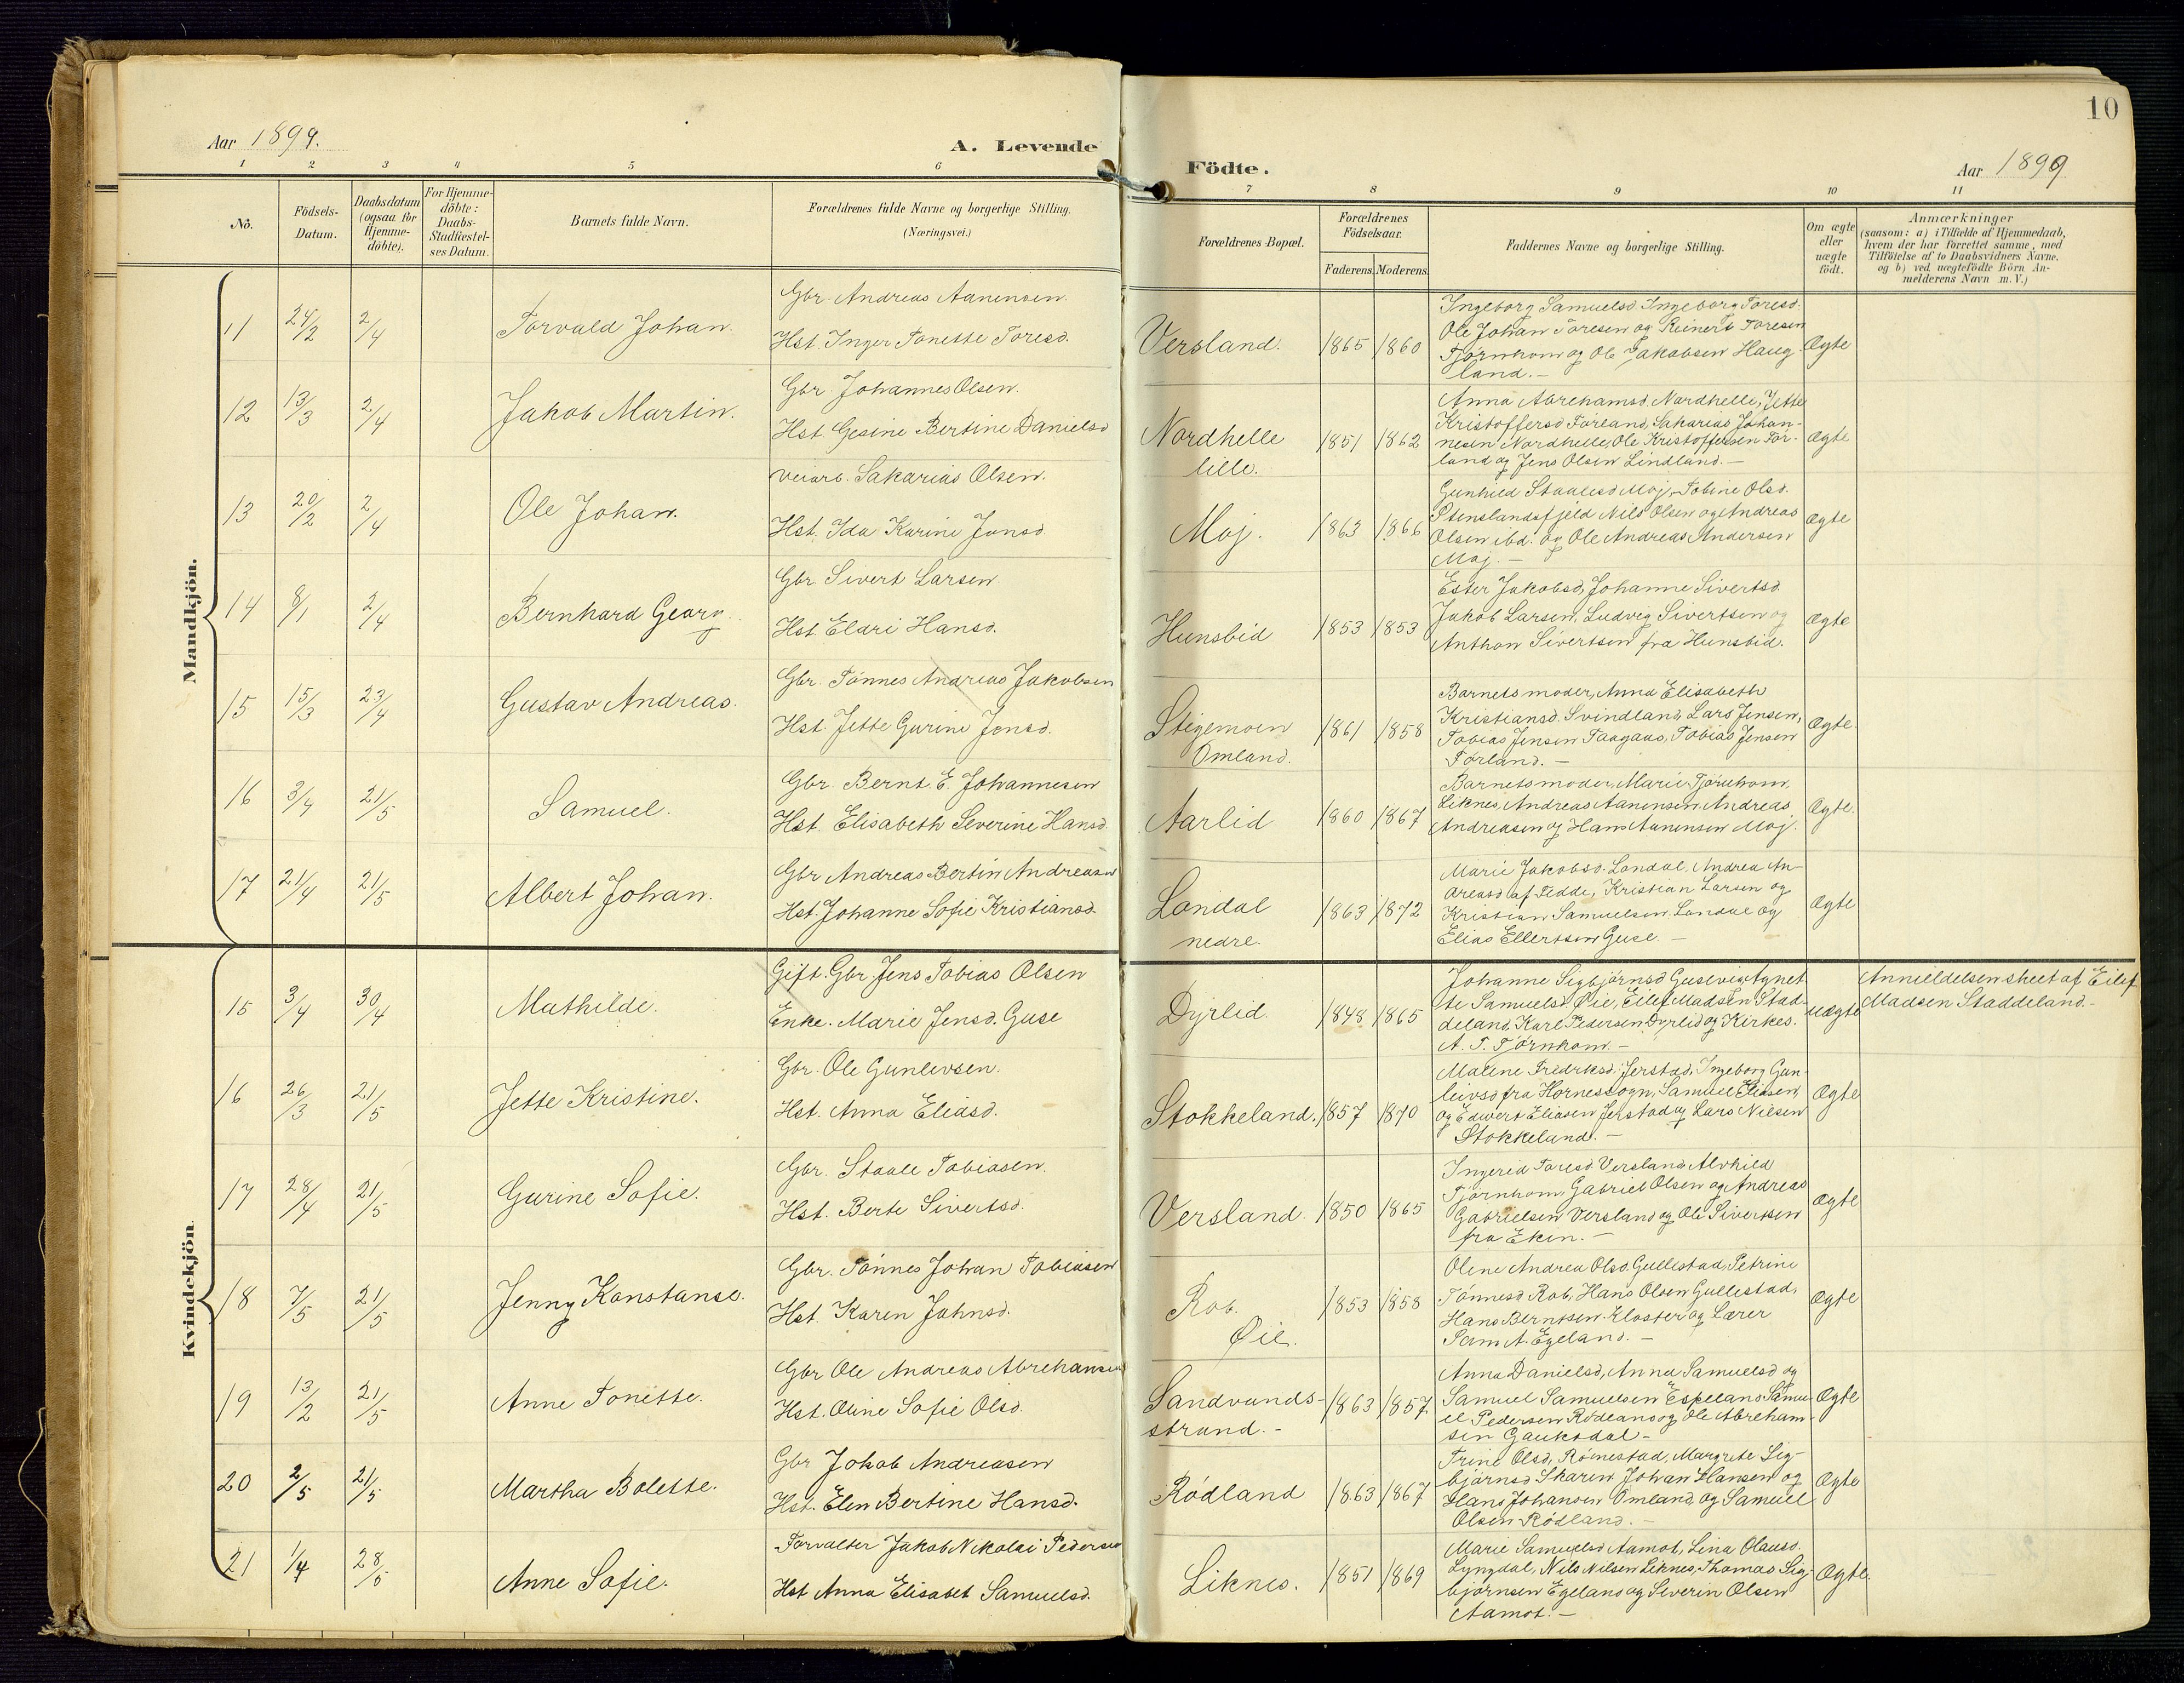 10
Aar 1899.
A. Levende
Födte.
Aar 1899
1 2 3 4 5 6
7 8 9 10 11
No.
Födsels-Datum.
Daabsdatum (ogsaa for Hjemme-döbte).
For Hjemme-döbte: Daabs-Stadfæstel-ses Datum.
Barnets fulde Navn.
Forældrenes fulde Navne og borgerlige Stilling.
(Næringsvei.)
Forældrenes Bopæl.
Forældrenes Födselsaar.
Faderens. Moderens.
Faddernes Navne og borgerlige Stilling.
Om ægte eller uægte födt.
Anmærkninger
(saasom: a) i Tilfælde af Hjemmedaab,
hvem der har forrettet samme, med
Tilföielse af to Daabsvidners Navne.
og b) ved uægtefödte Börn An-
melderens Navn m. V.)
Mandkjön.
11 24/2 2/4 Torvald Johan.
Gbr. Andreas Aanensen.
Hst. Inger Tonette Toresd.
Versland. 1865 1860
Ingeborg Samuelsd. Ingeborg Toresd.
Ole Johan Toresen og Reinert Toresen
Tjørnhom og Ole Jakobsen Haug
land.-
Ægte
12 13/3 2/4 Jakob Martin.
Gbr. Johannes Olsen.
Hst. Gesine Bertine Danielsd
Nordhelle
lille.
1851 1862
Anna Abrehamsd. Nordhelle, Jette
Kristoffersd Førland, Sakarias Johan-
nesen Nordhelle, Ole Kristoffersen Før-
land og Jens Olsen Lindland.-
Ægte
13 20/2 2/4 Ole Johan.
Veiarb. Sakarias Olsen.
Hst. Ida Karine Jonsd.
Moj. 1863 1866
Gunhild Staalesd Moj, Tobine Olsd.
Stenslandsfjeld Nils Olsen og Andreas
Olsen ibd. og Ole Andreas Andersen
Moj.-
Ægte
14 8/1 2/4 Bernhard Georg.
Gbr. Sivert Larsen
Hst. Eldri Hansd.
Hunsbid 1853 1853
Ester Jakobsd, Johanne Sivertsd.
Jakob Larsen, Ludvig Sivertsen og
Anthon Sivertsen fra Hunsbid.
Ægte
15 15/3 23/4 Gustav Andreas.
Gbr. Tønnes Andreas Jakobsen
Hst. Jette Gurine Jensd.
Stigemoen
Omland.
1861 1858
Barnets moder, Anna Elisabeth
Kristiansd. Svindland, Lars Jensen,
Tobias Jensen Faagaas, Tobias Jensen
Førland.-
Ægte.
16 3/4 21/5 Samuel.
Gbr. Bernt E. Johannesen
Hst. Elisabeth Severine Hansd.
Aarlid 1860 1867
Barnets moder, Marie Tjørnhom,
Liknes, Andreas Aanensen, Andreas
Andreasen og Hans Aanensen Moj.
Ægte.
17 21/4 21/5 Albert Johan.
Gbr Andreas Bertin Andreasen
Hst. Johanne Sofie Kristiansd.
Londal
nedre.
1863 1872
Marie Jakobsd. Londal, Andrea An-
dreasd af Fedde, Kristian Larsen og
Kristian Samuelsen Londal og
Elias Ellertsen Guse.-
Ægte
Kvindekjön
15 3/4 30/4 Mathilde.
Gift. Gbr. Jens Tobias Olsen
Enke. Marie Jensd. Guse
Dyrlid. 1848 1865
Johanne Sigbjørnsd Gusevig, Agnet
te Samuelsd Øie, Eilef Madsen Stad-
deland, Karl Pedersen Dyrlid og Kirkes.
A. T. Tjørnhom.-
uægte
Anmeldelsen skeet af Eilef
Madsen Staddeland.-
16 26/3 21/5 Jette Kristine.
Gbr. Ole Gunlevsen.
Hst. Anna Eliasd.
Stokkeland. 1857 1870
Maline Fredriksd. Jerstad, Ingeborg Gun-
leivsd fra Hornes sogn, Samuel Eliasen
og Edvert Eliasen Jerstad og Lars Nilsen
Stokkeland.-
Ægte
17 28/4 21/5 Gurine Sofie.
Gbr. Staale Tobiasen.
Hst. Berte Sivertsd.
Versland. 1850 1865
Ingerid Toresd Versland, Alvhild
Tjørnhom, Gabriel Olsen og Andreas
Gabrielsen Versland og Ole Sivertsen
fra Eken.-
Ægte
18 7/5 21/5 Jenny Konstanse.
Gbr. Tønnes Johan Tobiasen
Hst. Karen Johnsd.
Rob.
Øie.
1853 1858
Oline Andrea Olsd. Gullestad, Petrine
Tønnesd Rob, Hans Olsen Gullestad,
Hans Berntsen Kloster og Lærer
Sam. A. Egeland.-
Ægte
19 13/2 21/5 Anne Tonette.
Gbr Ole Andreas Abrehamsen
Hst. Oline Sofie Olsd.
Sandvands-
strand.-
1863 1857
Anna Danielsd, Anna Samuelsd og
Samuel Samuelsen Espeland, Samu-
el Pedersen Rødland og Ole Abreham-
sen Gauksdal-
Ægte
20 2/5 21/5 Martha Bolette.
Gbr Jakob Andreasen
Hst. Elen Bertine Hansd.
Rødland 1863 1867
Trine Olsd, Rømestad, Margrete Sig-
bjørnsd Skaren, Johan Hansen og
Hans Johansen Omland, og Samuel
Olsen Rødland.-
Ægte
21 1/4 28/5 Anne Sofie.
Forvalter Jakob Nikolai Pedersen
Hst Anna Elisabet Samuelsd.
Liknes. 1851 1869
Marie Samuelsd Aamot, Lina Olausd.
Lyngdal, Nils Nilsen Liknes, Thomas Sig-
bjørnsen Egeland og Severin Olsen
Aamot.-
Ægte.